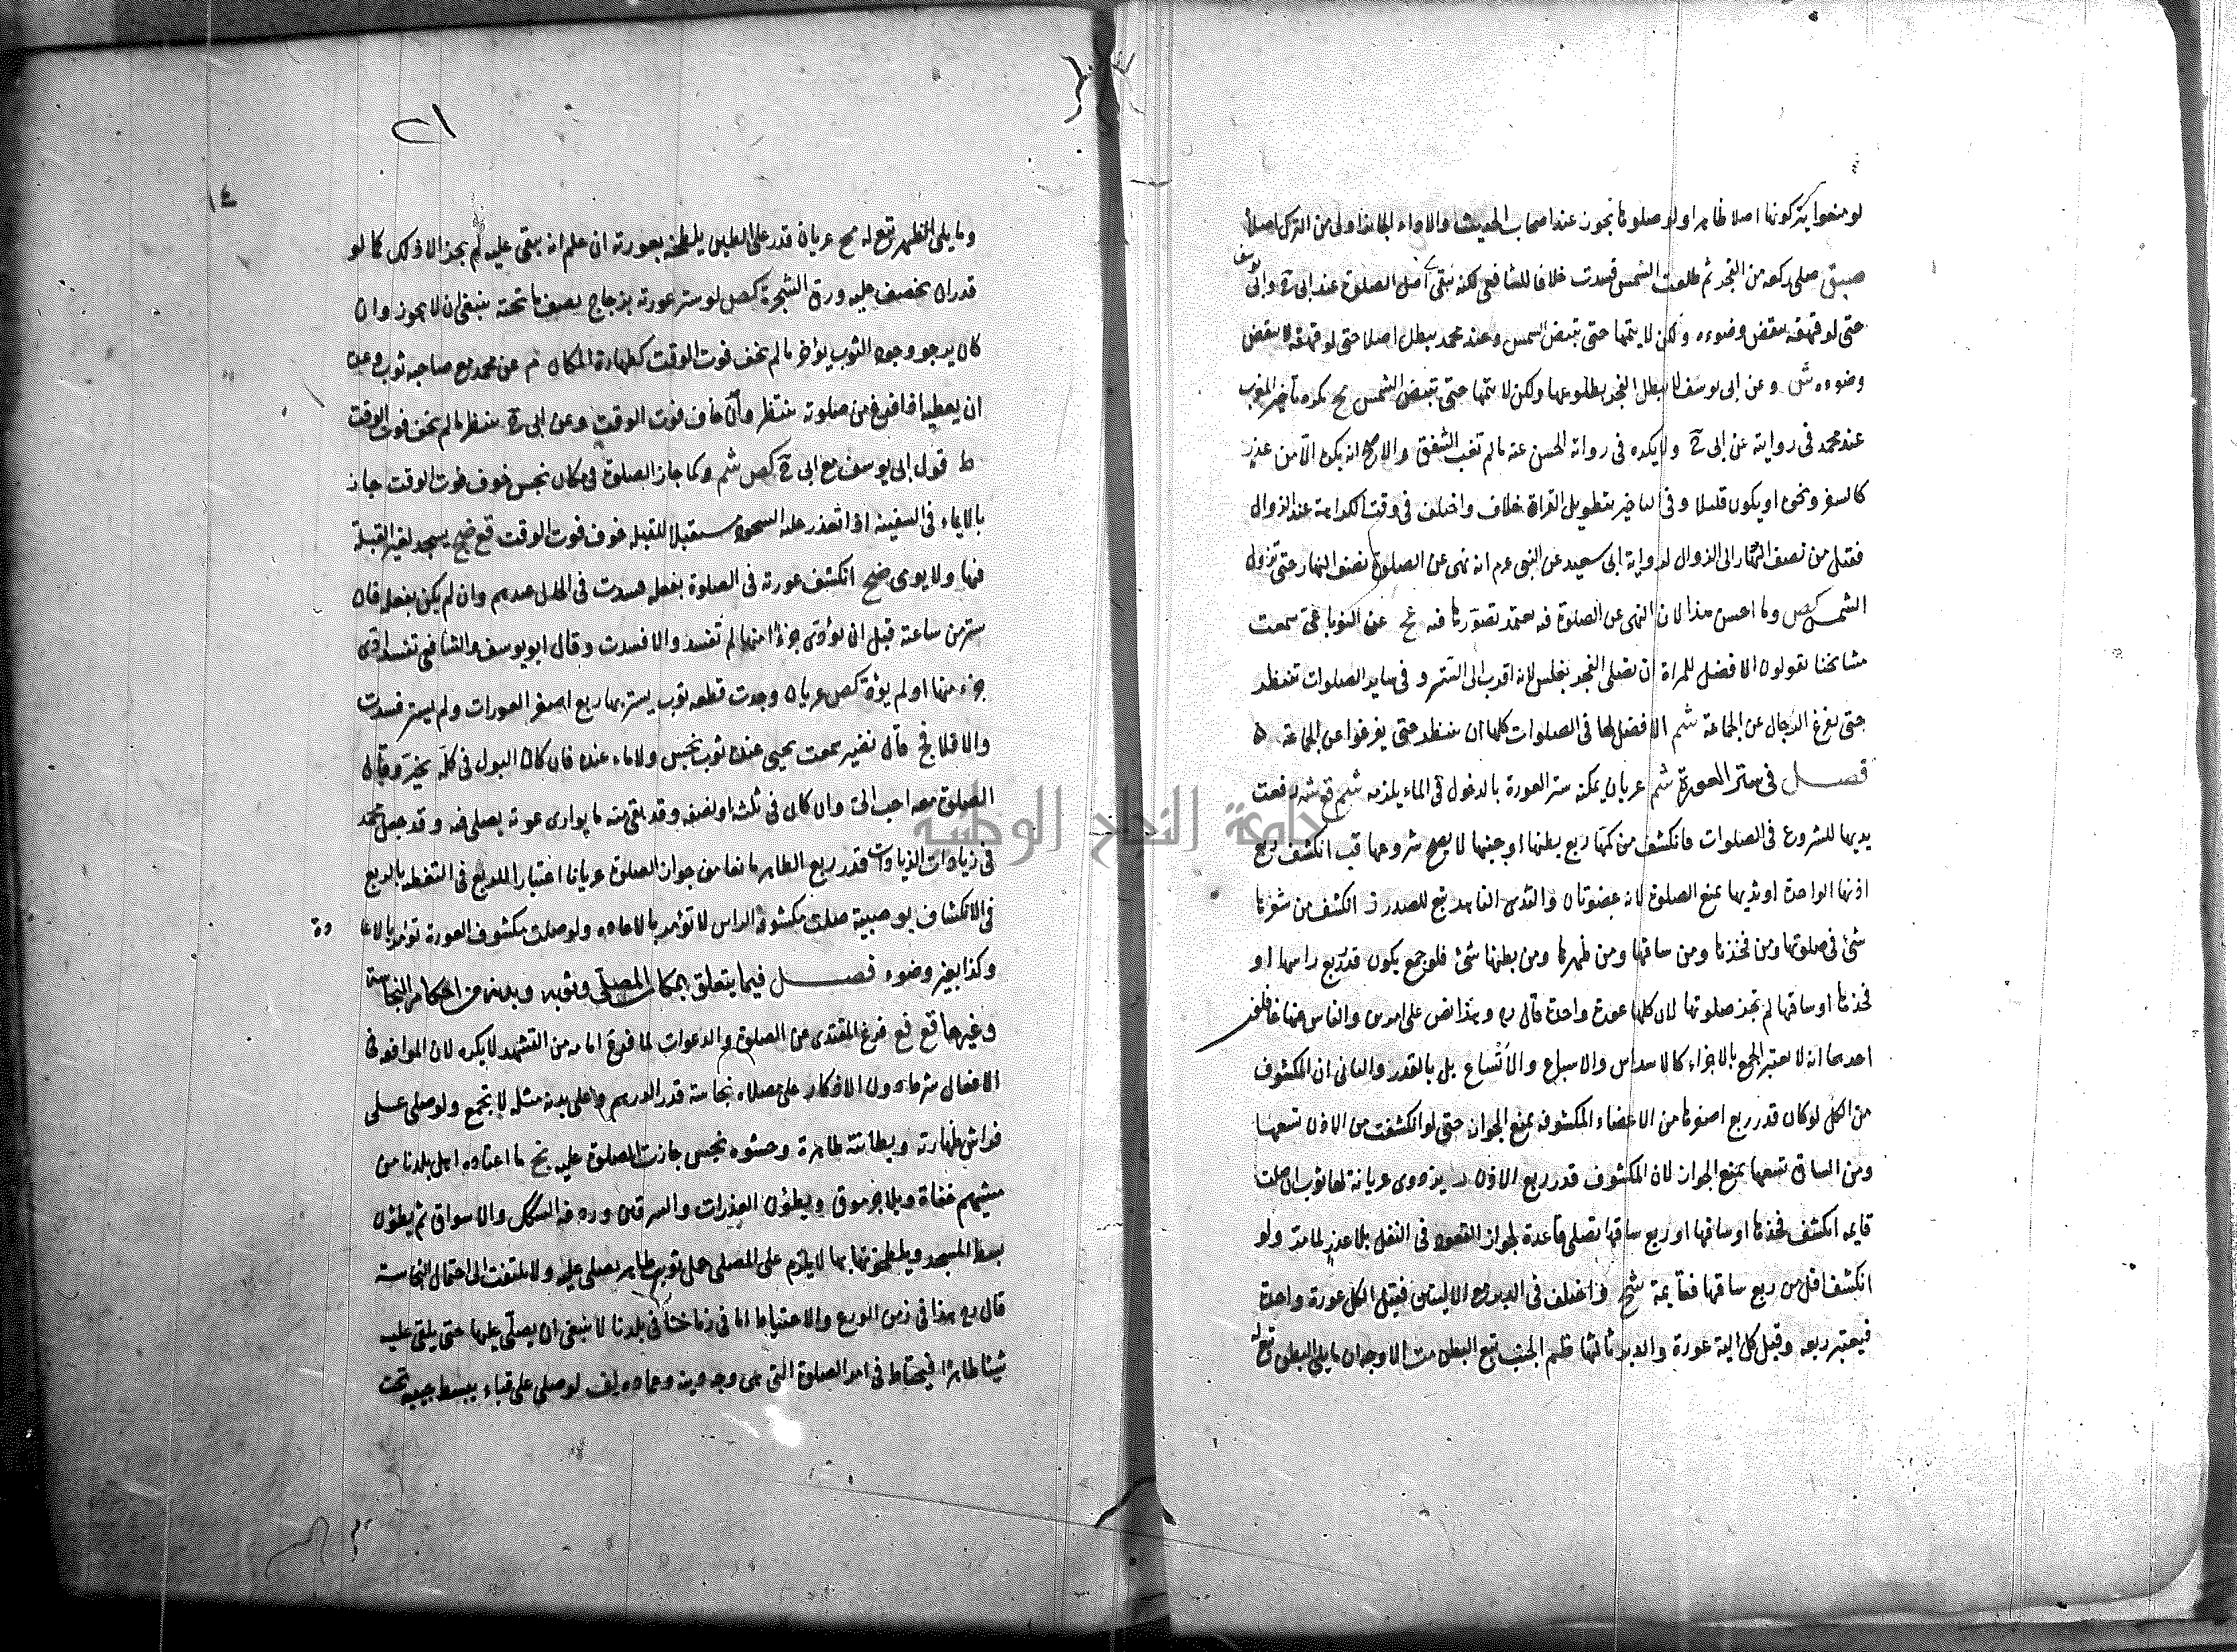 لو منعوا يتركونها اصلا ظاهرا ولو صلوها تجوز عند اصحاب الحديث والاداء الجائز اولى من الترك اصلا
صبى صلى ركعه من الفجر ثم طلعت الشمس فسدت خلافا للشافعى لكنه تبقى اصل الصلوة عند ابى ح وابى يوسف
حتى لو قهقه ينقض وضوءه ولكن لا يتمها حتى تبيض الشمس وعند محمد يبطل اصلا حتى لو قهقه لا ينقض
وضوءه وعن ابى يوسف لا يبطل الفجر بطلوعها ولكن لا يتمها حتى تبيض الشمس مح يكره تاخير المغرب
عند محمد فى رواية عن ابى ح ولا يكره فى رواية الحسن عنه ما لم تغب الشفق والاصح انه يكره الا من عذر
كالسفر ونحوه او يكون قليلا وفى التاخير بتطويل القراة خلاف واختلف فى وقت الكراهة عند الزوال
فقيل من نصف النهار الى الزوال لرواية ابى سعيد عن النبى عم انه نهى عن الصلوة نصف النهار حتى تزول
الشمس كص وما احسن هذا لان النهى عن الصلوة فيه يعتمد تصورها فيه سمعت
مشايخنا يقولون الافضل للمراة ان تصلى الفجر بغلس لانه اقرب الى التستر وفى ساير الصلوات تنتظر
حتى يفرغ الرجال عن الجماعة شم الافضل لها فى الصلوات كلها ان تنتظر حتى يفرغوا عن الجماعة
فصل فى ستر العورة شم عريان يمكنه ستر العورة بالدخول فى الماء يلزمه شم قع شه رفعت
يديها للشروع فى الصلوات فانكشف من كمها ربع بطنها او جنبها لا يصح شروعها قب انكشف ربع
اذنها الواحدة او ثديها يمنع الصلوة لانه عضوتان والثدى الناهد تبع للصدر انكشف من شعرها
شئ فى صلوتها ومن فخذها ومن ساقها ومن ظهرها ومن بطنها شئ فلو جمع يكون قدر ربع راسها او
فخذها او ساقها لم تجز صلوتها لان كلها عورة واحدة قال ره وهذا نص على امرين والناس عنهما غافلون
احدهما انه لا يعتبر الجمع بالاجزاء كالاسداس والاسباع والاتساع بل بالقدر والثانى ان المكشوف
من الكل لو كان قدر ربع اصغرها من الاعضاء المكشوفه يمنع الجواز حتى لو انكشفت من الاذن تسعها
ومن الساق تسعها يمنع الجواز لان المكشوف قدر ربع الاذن عريانة لها ثوب ان صلت
قايمه انكشف فخذها او ساقها او ربع ساقها تصلى قاعدة لجواز القعود فى النفل بلا عذر لما مر ولو
انكشف اقل من ربع ساقها فقايمة شح واختلف فى الدبر مع الاليتين فقيل الكل عورة واحدة
فيعتبر ربعه وقيل كل الية عورة والدبر ثالثها ظم الجنب تبع البطن مت الاوجه ان ما يلى البطن تبع له
٢١
١٤
وما يلى الظهر تبع له مح عريان قدر على الطين يلطخه بعورته ان علم انه يبقى عليه لم يجز الا ذلك كما لو
قدر ان يخصف عليه ورق الشجرة كص لو ستر عورته بزجاج يصف ما تحته ينبغى ان لا يجوز وان
كان يرجو وجود الثوب يؤخر ما لم يخف فوت الوقت كطهارة المكان م عن محمد مع صاحبه ثوب وعده
ان يعطيه اذا فرغ من صلوته ينتظر وان خاف فوت الوقت وعن ابى ح ينتظر ما لم يخف فوت الوقت
ط قول ابى يوسف مع ابى ح كص شم وكما جاز الصلوة فى مكان نجس خوف فوت الوقت جاز
بالايماء فى السفينه اذا تعذر عليه السجود مستقبلا للقبلة خوف فوت الوقت قع ضح يسجد لغير القبلة
فيها ولا يومى ضح انكشف عورته فى الصلوة بفعله فسدت فى الحال عندهم وان لم يكن بفعله فان
ستر من ساعته قبل ان يؤدى جزءا منها لم تفسد والا فسدت وقال ابو يوسف والشافعى تفسد ادى
جزء منها او لم يؤد كص عريان وجدت قطعه ثوب يستر بها ربع اصغر العورات ولم يستر فسدت
والا فلا فج قال نصير سمعت يحيى عنده ثوب نجس ولا ماء عنده فان كان البول فى كله يخير وقال
الصلوة معه احب الى وان كان فى ثلثه او نصفه وقد بقى منه ما يوارى عورته يصلى فيه وقد جعل محمد
فى زيادات الزيادات قدر ربع الطاهر مانعا من جواز الصلوة عريانا اعتبارا للربع فى التغطية بالربع
فى الانكشاف بو صبية صلت مكشوفة الراس لا تؤمر بالاعاده ولو صلت مكشوف العورة تؤمر بالاعادة
وكذا بغير وضوء فصل فيما يتعلق بمكان المصلى وثوبه وبدنه من احكام النجاسة
وغيرها قع فع فرغ المقتدى من الصلوة والدعوات لما فرغ امامه من التشهد لا يكره لان الموافقه فى
الافعال شرط دون الاذكار على مصلاه نجاسة قدر الدرهم وعلى بدنه مثله لا يجمع ولو صلى على
فراش ظهارته وبطانته طاهرة وحشوه نجس جازت الصلوة عليه بخ ما اعتاده اهل بلدنا من
مشيهم حفاة وبلا جرموق ويطؤن العذرات والسرقين ورده فى السكك والاسواق ثم يطؤن
بسط المسجد ويلطخونها بها لا يلزم على المصلى حمل ثوب طاهر يصلى عليه ولا يلتفت الى احتمال النجاسة
قال ره هذا فى زمن الورع والاحتياط اما فى زماننا فى بلدنا لا ينبغى ان يصلى عليها حتى يلقى عليه
شيئا طاهرا فيحتاط فى امر الصلوة التى هى وجه دينه وعماده لو صلى على قباء يبسط جيبه تحت
جامعة النجاح الوطنية